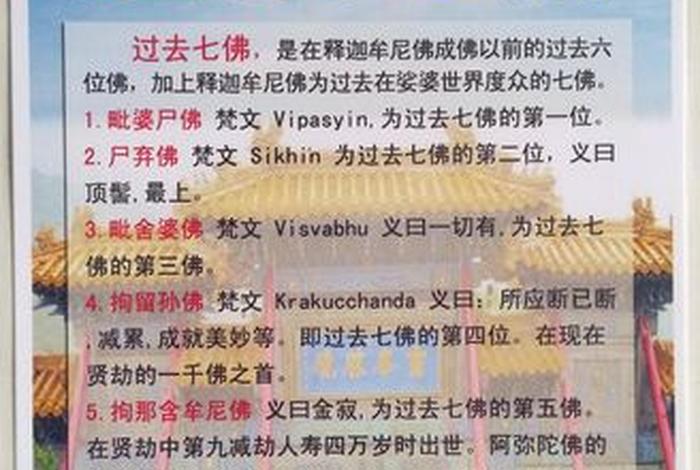 过去七佛，是在释迦牟尼佛成佛以前的过去六
位佛，加上释迦牟尼佛为过去在娑婆世界度众的七佛。
1.毗婆尸佛 梵文 Vipasyin,为过去七佛的第一位。
2.尸弃佛 梵文 Sikhin 为过去七佛的第二位，义曰
顶髻,最上。
3.毗舍婆佛 梵文 Visvabhu 义曰一切有,为过去七
佛的第三佛。
4.拘留孙佛 梵文 Krakucchanda 义曰：所应断已断
,减累,成就美妙等。即过去七佛的第四位。在现在
贤劫的一千佛之首。
5.拘那含牟尼佛 义曰金寂,为过去七佛的第五佛。
在贤劫中第九减劫人寿四万岁时出世。阿弥陀佛的